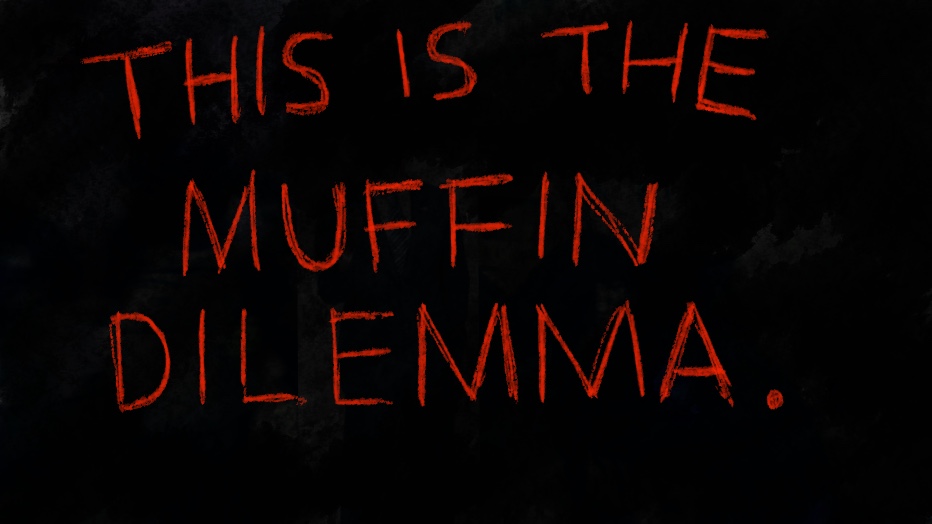 THIS IS THE
MUFFIN
DILEMMA.